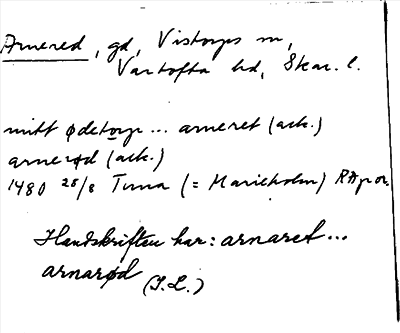 Arnered, gd, Vistorps sn,
Vartofta hd, Skar. l.
mitt ødetorp ... arneret (ack.)
arnerød (ack.)
1480 28/8 Tuna (= Marieholm) RAp or.
Handskriften har: arnaret ...
arnarød (I.L.)